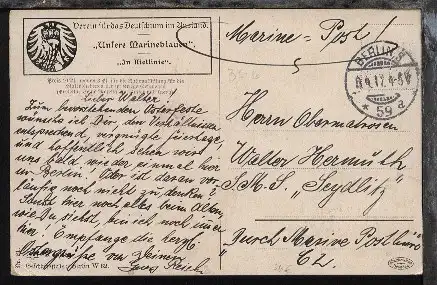 Verein für das Deutschtum im Ausland.
„Unsere Marineblauen."
„In Kiellinie".
Marine-Post!
BERLIN
59
a
Lieber Walter.
Zum bevorstehenden Osterfeste
wünsche ich Dir, den Verhältnissen
entsprechend, vergnügte Feiertage,
und hoffentlich sehen wir
uns bald wieder einmal hier
in Berlin! Oder ist daran vor-
läufig noch nicht zu denken?
Sonst hier noch alles beim Alten,
wie Du siehst, bin ich noch immer
hier! Empfange die herzl.
Ostergrüße von Deinem
Herrn Obermatrosen
Walter Hermuth
S.M.S. „Seydlitz"
Durch Marine Postbüro
Berlin W 62.